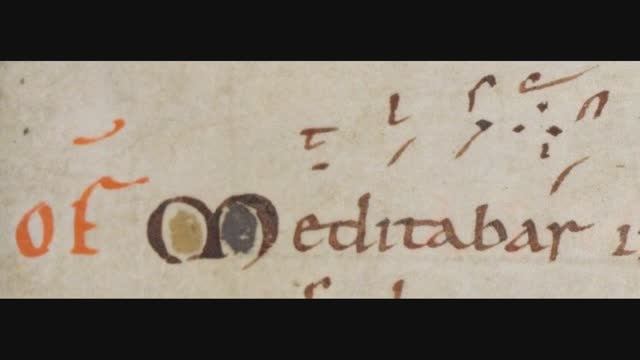 OF Meditabar